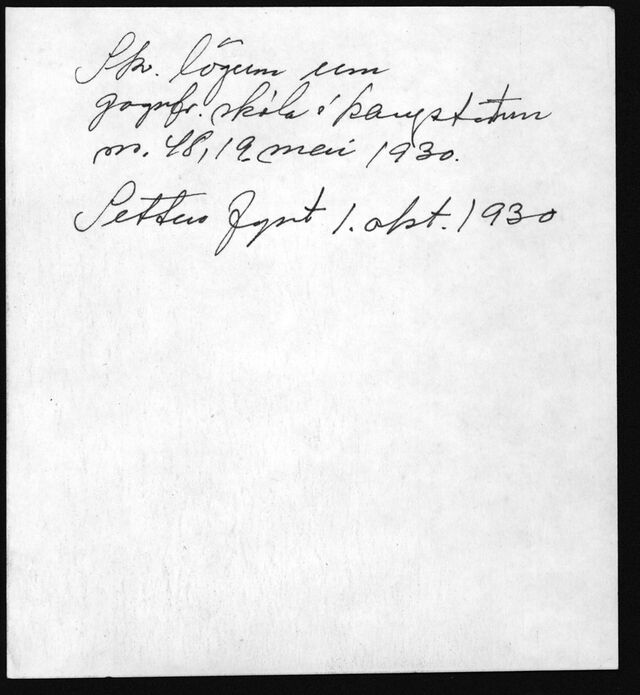 Skv. lögum um
gagnfr. skóla í kaupstöðum
nr. 48, 19 maí 1930.
Settur fyrst 1. okt. 1930